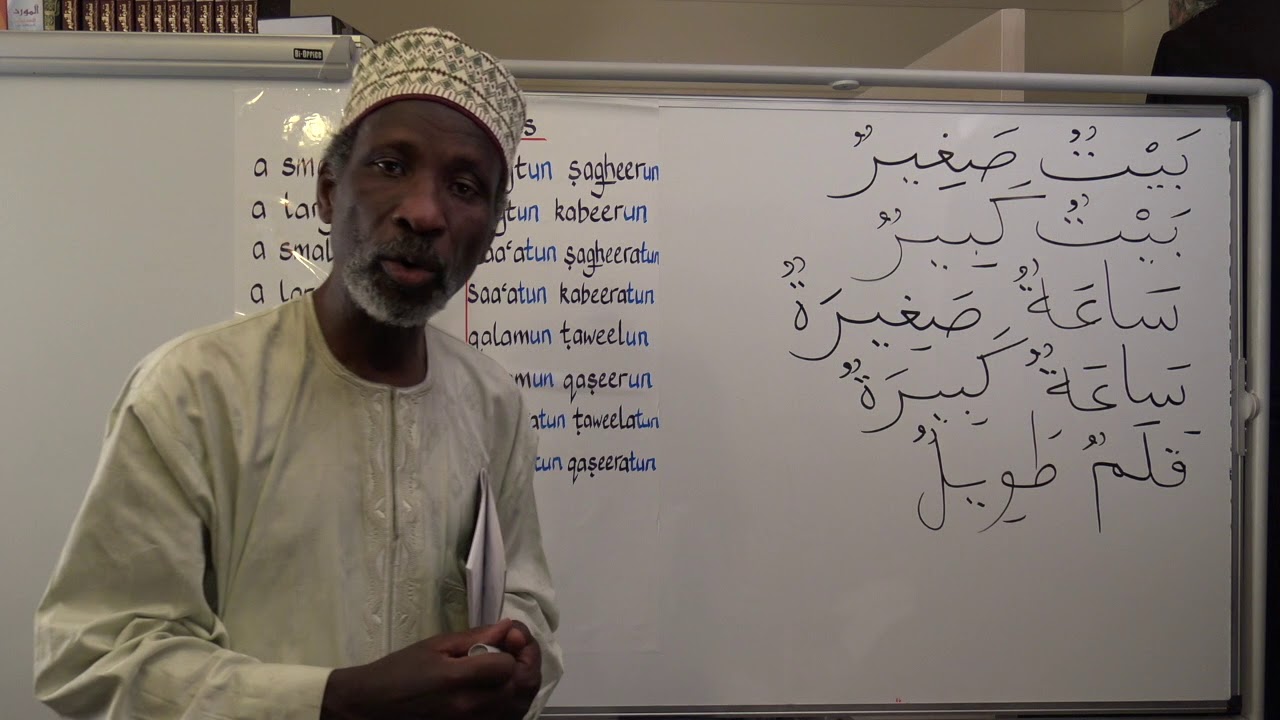 Bi-Office
s
a sm tun ṣagheerun
a lar tun kabeerun
a smal aaʻatun ṣagheeratun
a lar saaʻatun kabeeratun
qalamun ṭaweelun
mun qaṣeerun
atun ṭaweelatun
tun qaṣeeratun
بَيْتٌ صَغِيرٌ
بَيْتٌ كَبِيرٌ
سَاعَةٌ صَغِيرَةٌ
سَاعَةٌ كَبِيرَةٌ
قَلَمٌ طَوِيلٌ